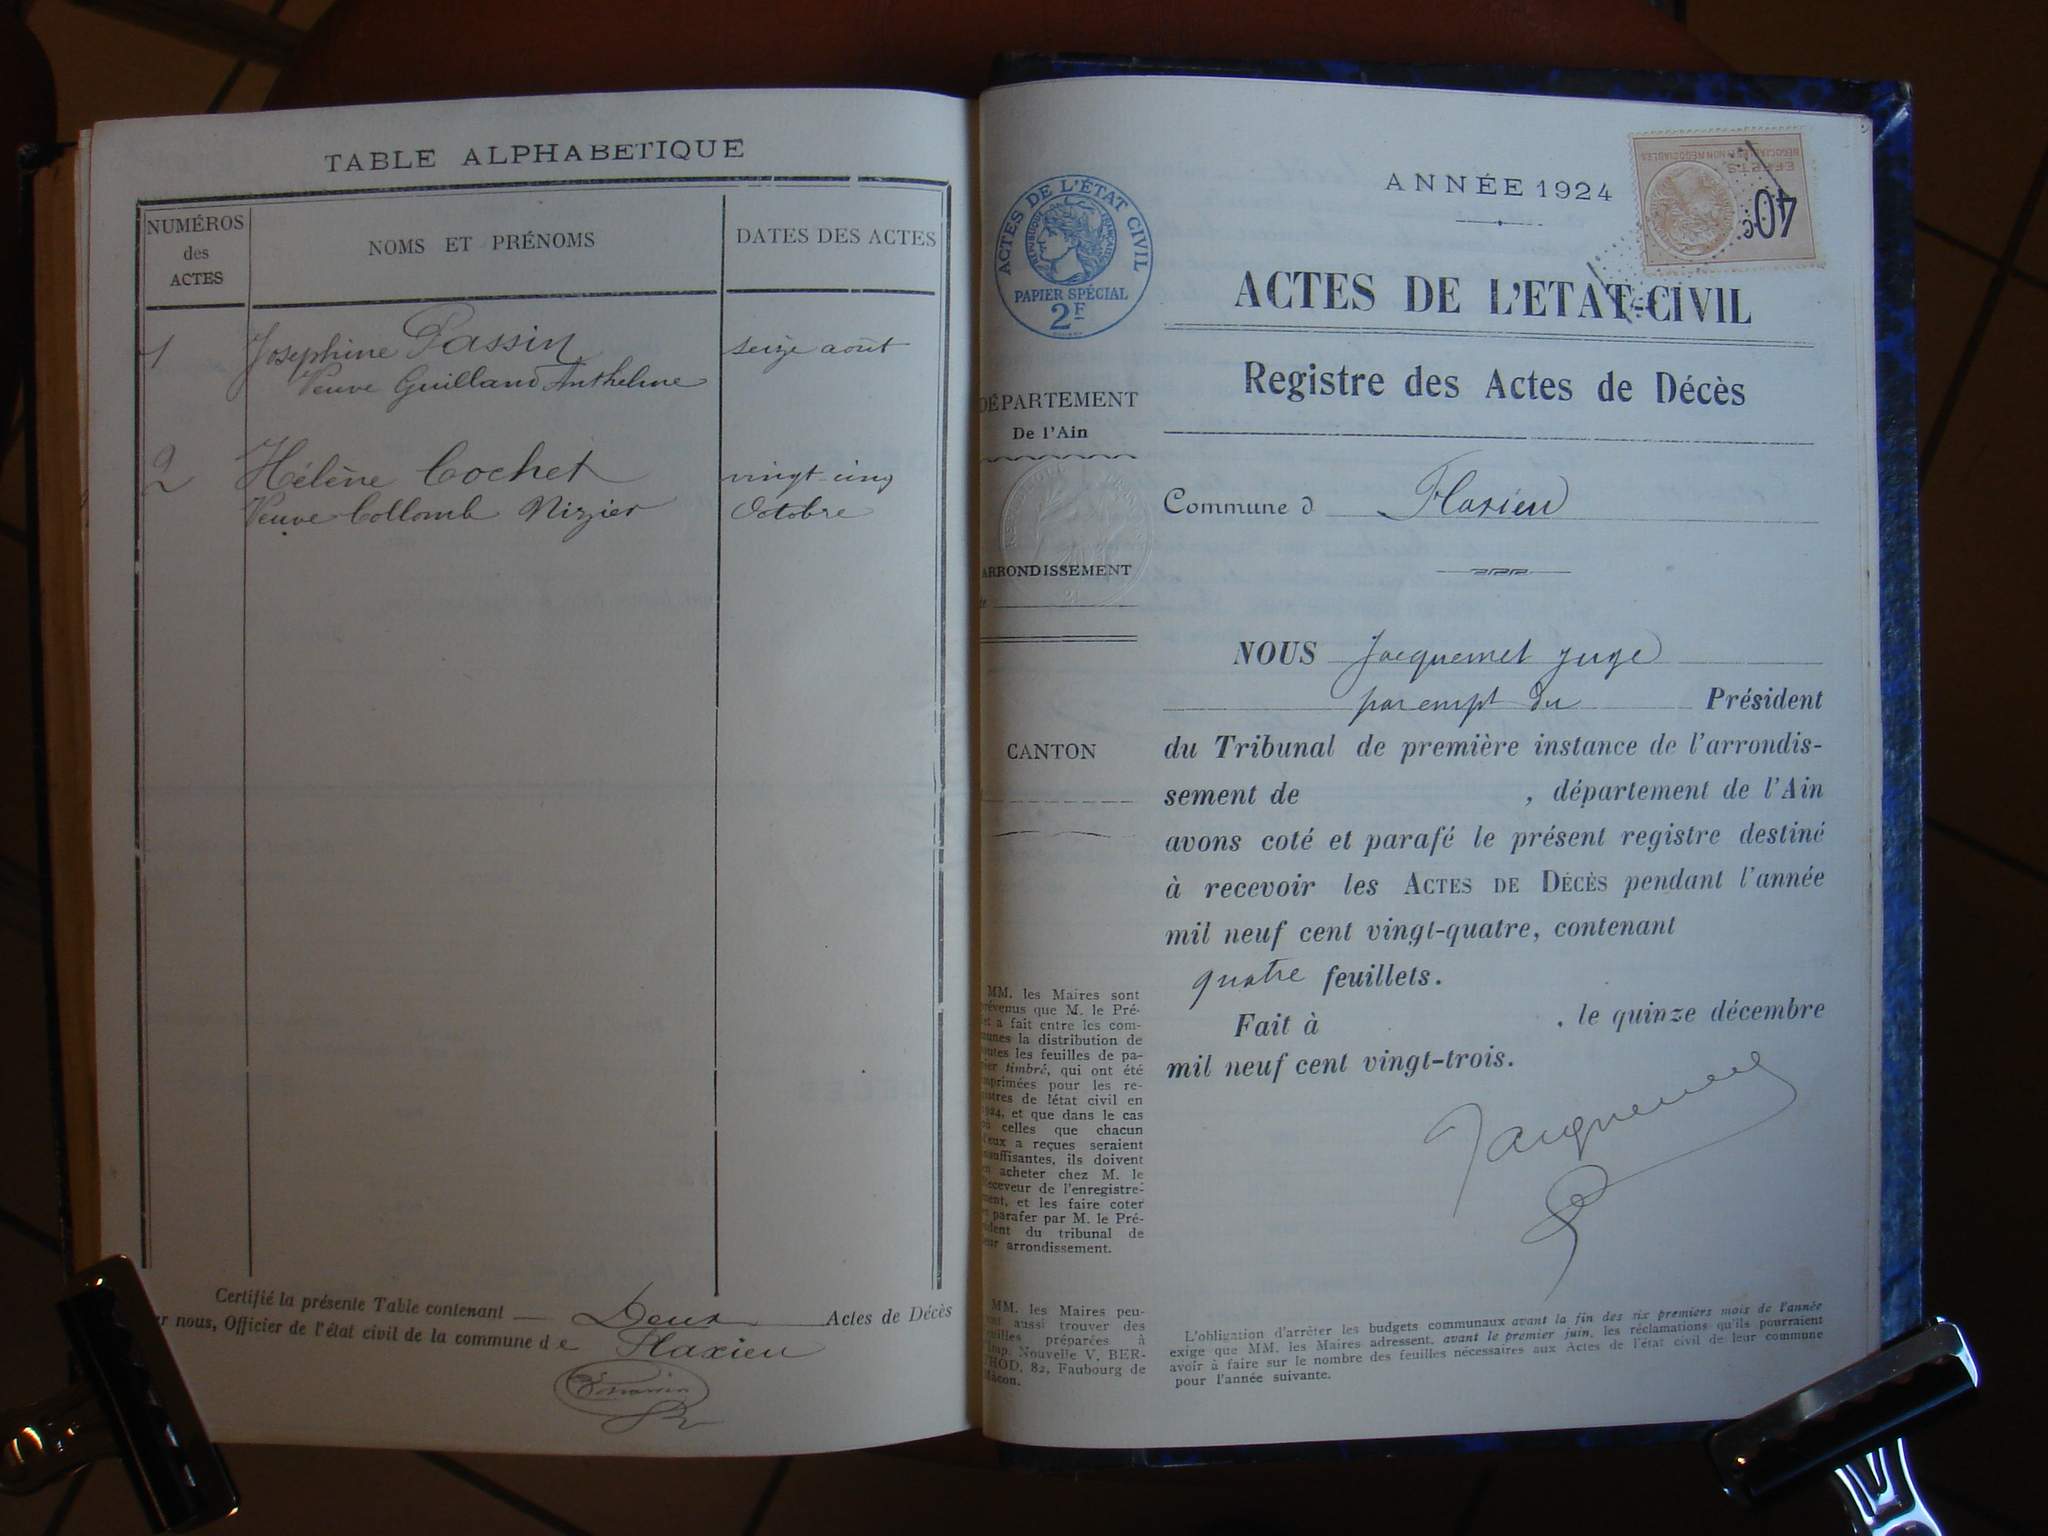 TABLE ALPHABETIQUE
NUMÉROS
des
ACTES
NOMS ET PRÉNOMS
DATES DES ACTES
1 Josephine Passin seize août
Veuve Guilland Anthelme
2 Hélène Cochet vingt-cinq
Veuve Collomb Nizier Octobre
Certifié la présente Table contenant Deux Actes de Décès
nous, Officier de l'état civil de la commune de Flaxieu
ACTES DE L'ÉTAT CIVIL
RÉPUBLIQUE FRANÇAISE
PAPIER SPÉCIAL
2F
DÉPARTEMENT
De l'Ain
ARRONDISSEMENT
CANTON
MM. les Maires sont
prévenus que M. le Pré-
fet a fait entre les com-
munes la distribution de
toutes les feuilles de pa-
pier timbré, qui ont été
imprimées pour les re-
gistres de l'état civil en
1924, et que dans le cas
où celles que chacun
d'eux a reçues seraient
insuffisantes, ils doivent
en acheter chez M. le
Receveur de l'enregistre-
ment, et les faire coter
et parafer par M. le Pré-
sident du tribunal de
leur arrondissement.
MM. les Maires peu-
vent aussi trouver des
feuilles préparées à
l'Imp. Nouvelle V. BER-
THOD, 82, Faubourg de
Mâcon.
ANNÉE 1924
EFFETS
NÉGOCIABLES ET NON NÉGOCIABLES
40c
ACTES DE L'ETAT-CIVIL
Registre des Actes de Décès
Commune d Flaxieu
NOUS Jacquemet juge
par empt du Président
du Tribunal de première instance de l'arrondis-
sement de , département de l'Ain
avons coté et parafé le présent registre destiné
à recevoir les ACTES DE DÉCÈS pendant l'année
mil neuf cent vingt-quatre, contenant
quatre feuillets.
Fait à , le quinze décembre
mil neuf cent vingt-trois.
Jacquemet
L'obligation d'arrêter les budgets communaux avant la fin des six premiers mois de l'année
exige que MM. les Maires adressent, avant le premier juin, les réclamations qu'ils pourraient
avoir à faire sur le nombre des feuilles nécessaires aux Actes de l'état civil de leur commune
pour l'année suivante.